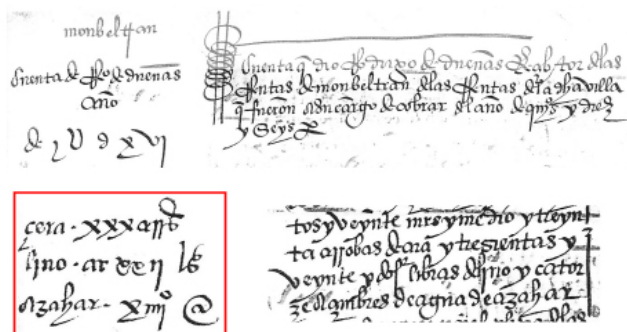 monbeltran
Cuenta de po de dueñas
año
de 1U d xvi
Cuenta q dio po de dueñas Recabtor de las
Rentas de monbeltran de las Rentas de la dha villa
q fueron a su encargo de cobrar el año de qujs y diez
y Seys
cera - xxx arrs
lino - xxij ls
Azahar - xiiijº @
tos y veynte mrs y medio y treyn
ta arrobas de cera y trezientas y
veynte y dos libras de lino y cator
ze açumbres de agua de azahar